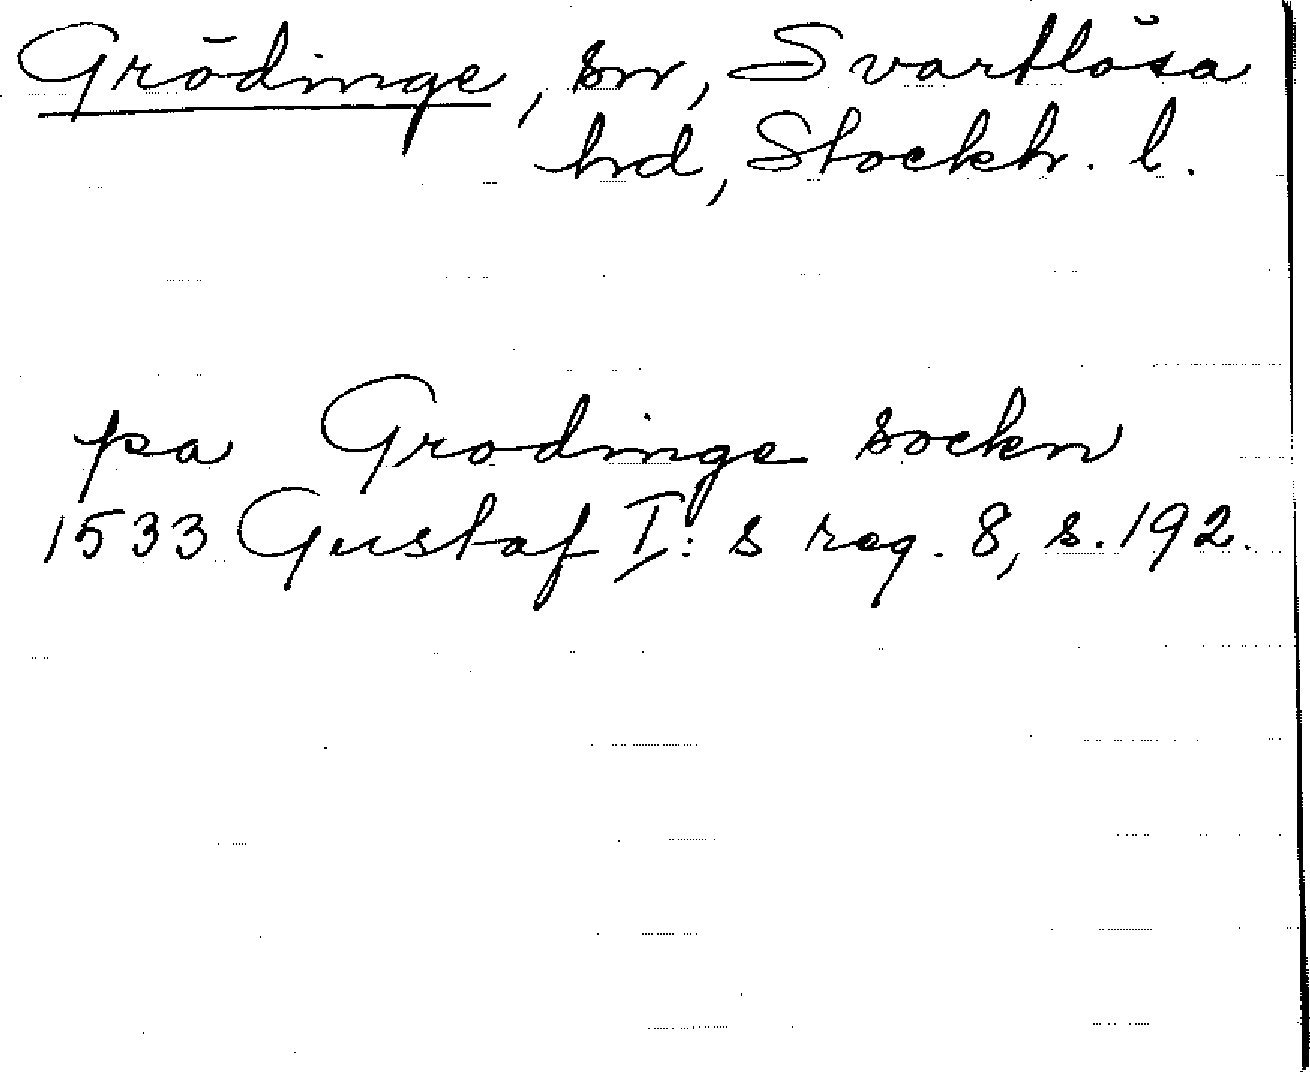 Grödinge, sn, Svartlösa
hd, Stockh. l.
pa Grodinge sockn
1533 Gustaf I:s reg. 8, s. 192.